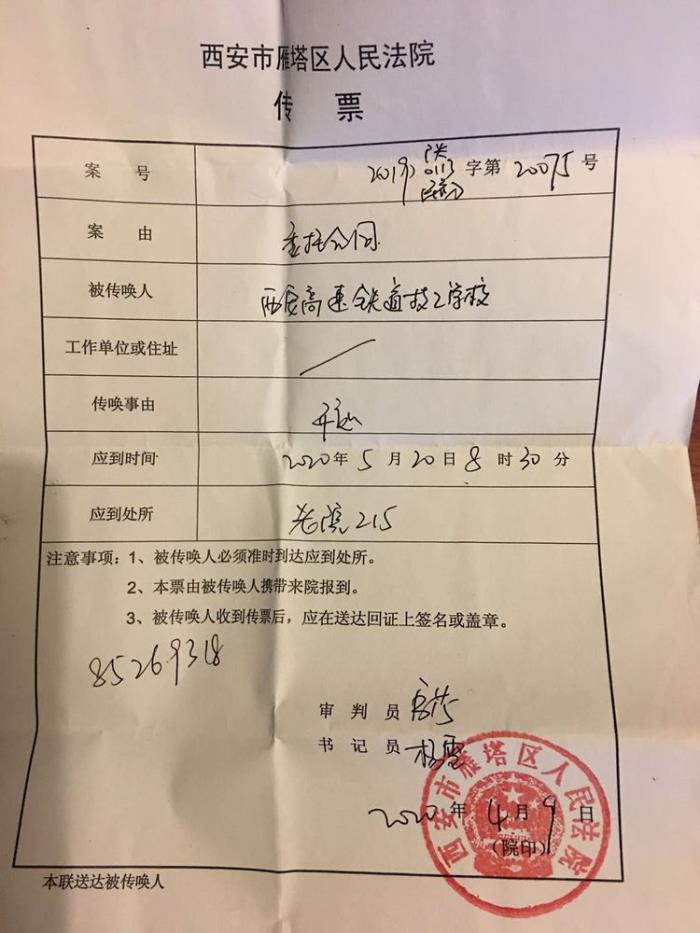 西安市雁塔区人民法院
传 票
案 号 2019) 陕0113民初 字第 20075 号
案 由 委托合同
被传唤人 西安高速铁道技工学校
工作单位或住址 /
传唤事由 开庭
应到时间 2020年 5 月 20日 8 时 30 分
应到处所 老院215
注意事项：1、被传唤人必须准时到达应到处所。
2、本票由被传唤人携带来院报到。
3、被传唤人收到传票后，应在送达回证上签名或盖章。
85269318
审 判 员
书 记 员 杨雪
2020 年 4 月 9 日
（院印）
西安市雁塔区人民法院
本联送达被传唤人